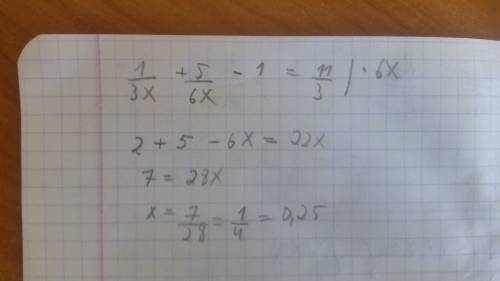 1/3x + 5/6x - 1 = 11/3 | · 6x
2 + 5 - 6x = 22x
7 = 28x
x = 7/28 = 1/4 = 0,25